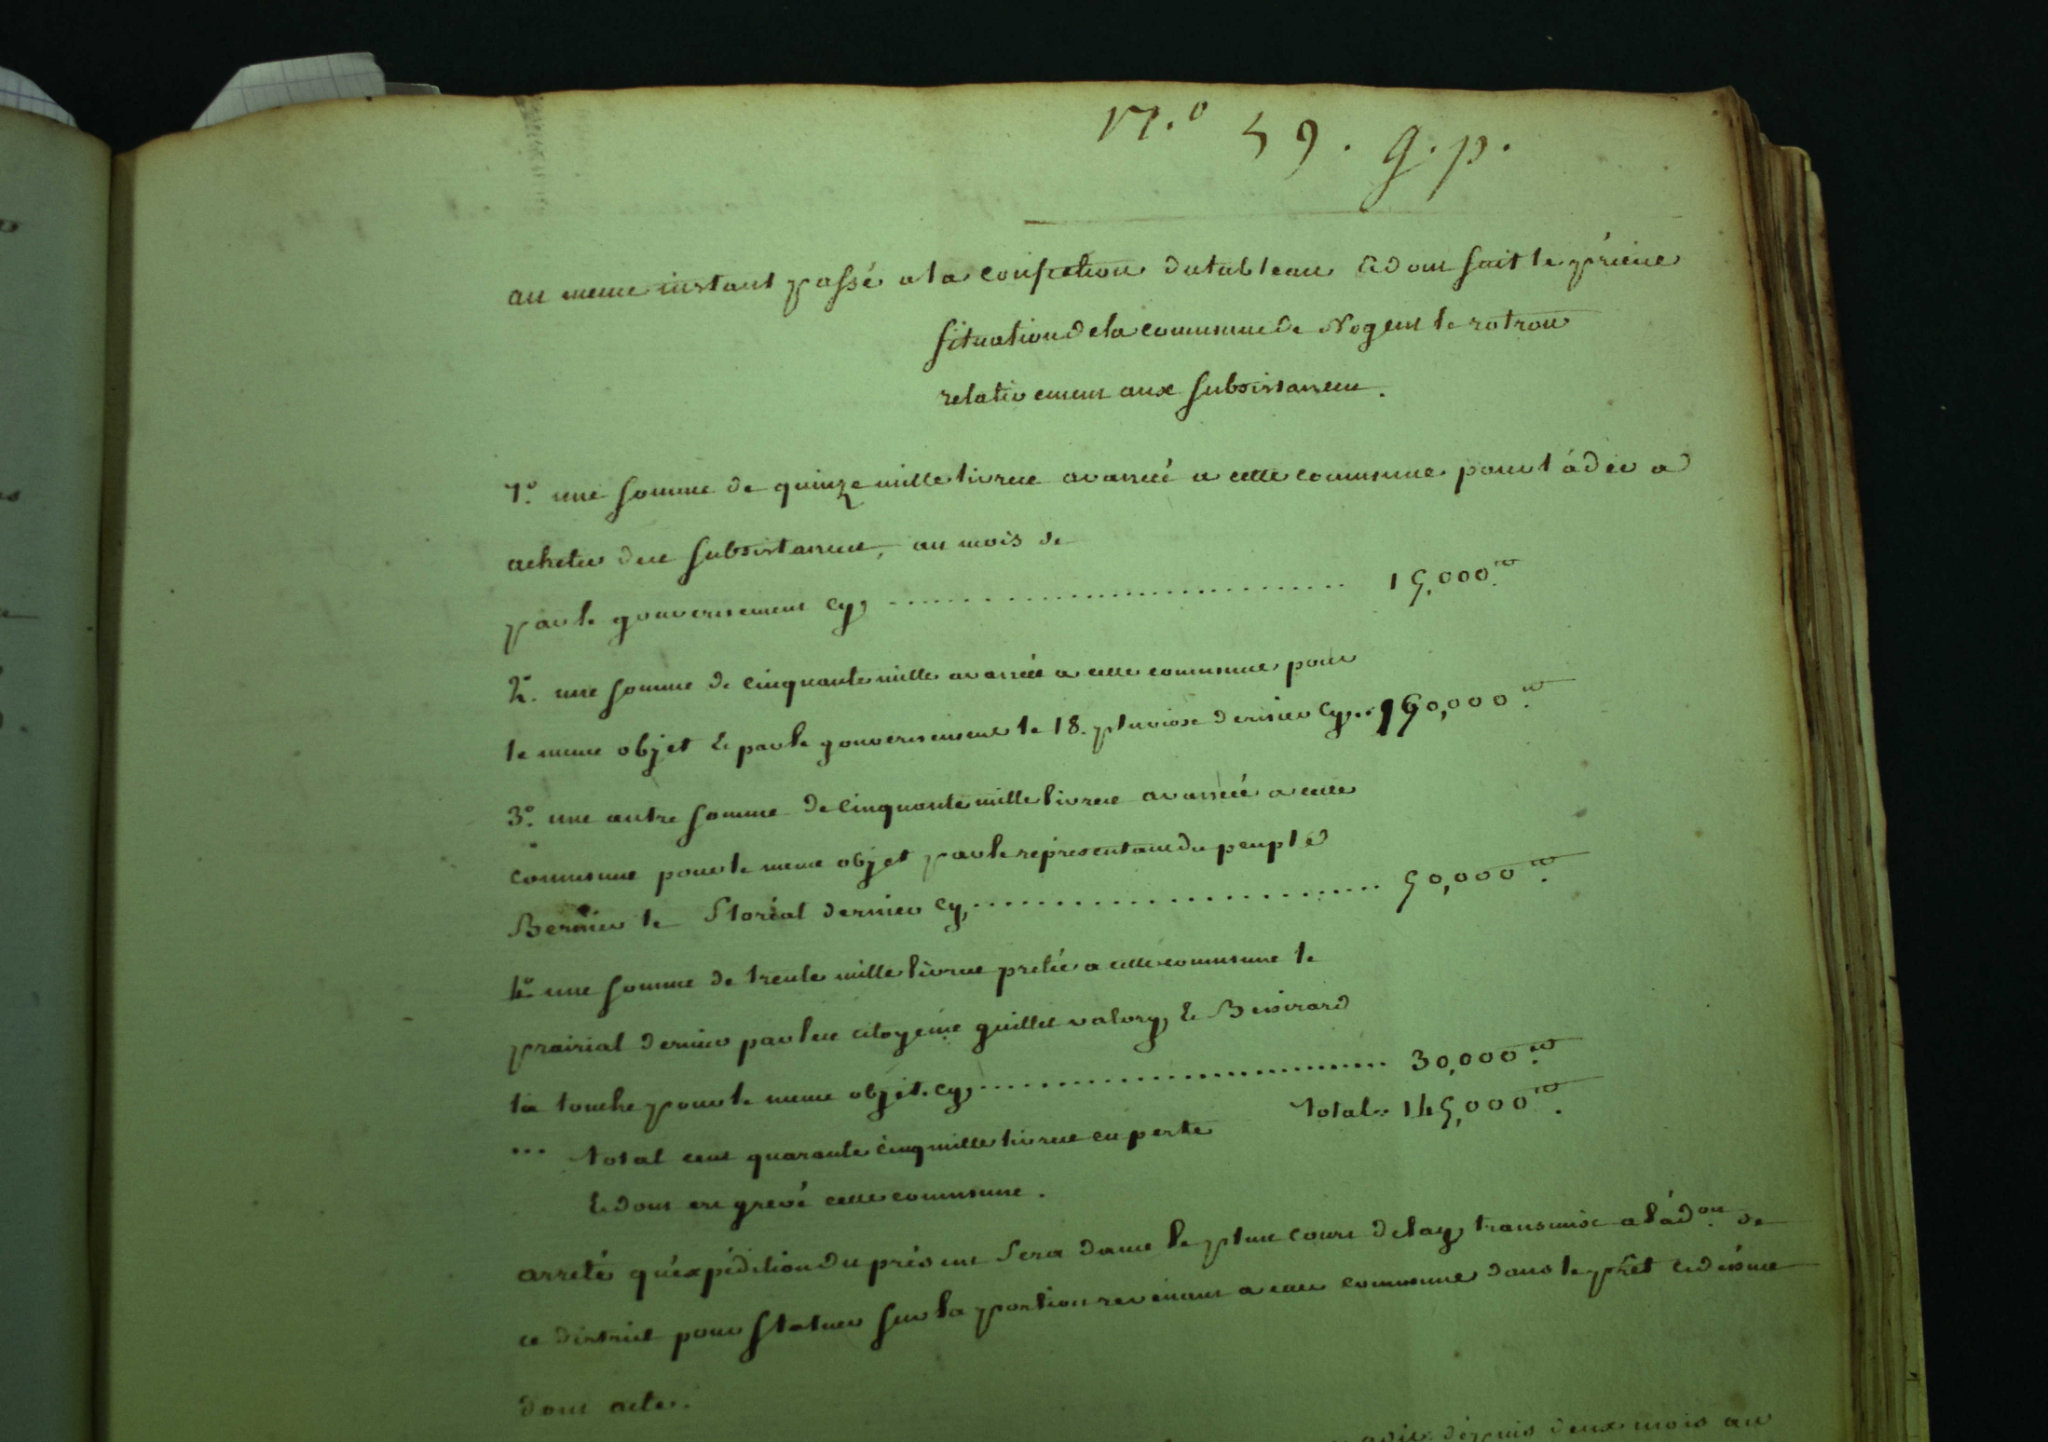 N.° 59. g.p.
au meme instant passé a la confection du tableau &
situation de la commune de Nogent le rotrou
relativement aux subsistances.
1.° une somme de quinze mille livres avancée a cette commune pour l'ader a
acheter des subsistances, au mois de
par le gouvernement cy, .......... 15,000.tt
2.° une somme de cinquante mille avancée a cette commune pour
le meme objet & par le gouvernement le 18. pluviose dernier cy, .. 50,000.tt
3.° une autre somme de cinquante mille livres avancée a cette
commune pour le meme objet par le representant du peuple
Bernier le floréal dernier cy, .......... 50,000.tt
4.° une somme de trente mille livres pretée a cette commune le
prairial dernier par les citoyens guillet valory, &
la touche pour le meme objet. cy, .......... 30,000.tt
... total cent quarante cinq mille livres en perte total .. 145,000.tt
& dont est grevé cette commune.
arreté qu'expédition du présent sera dans le plus court delay, transmise a l'ad.on de
ce district pour statuer sur la portion revenant a cette commune dans le prêt
dont acte.
depuis deux mois au